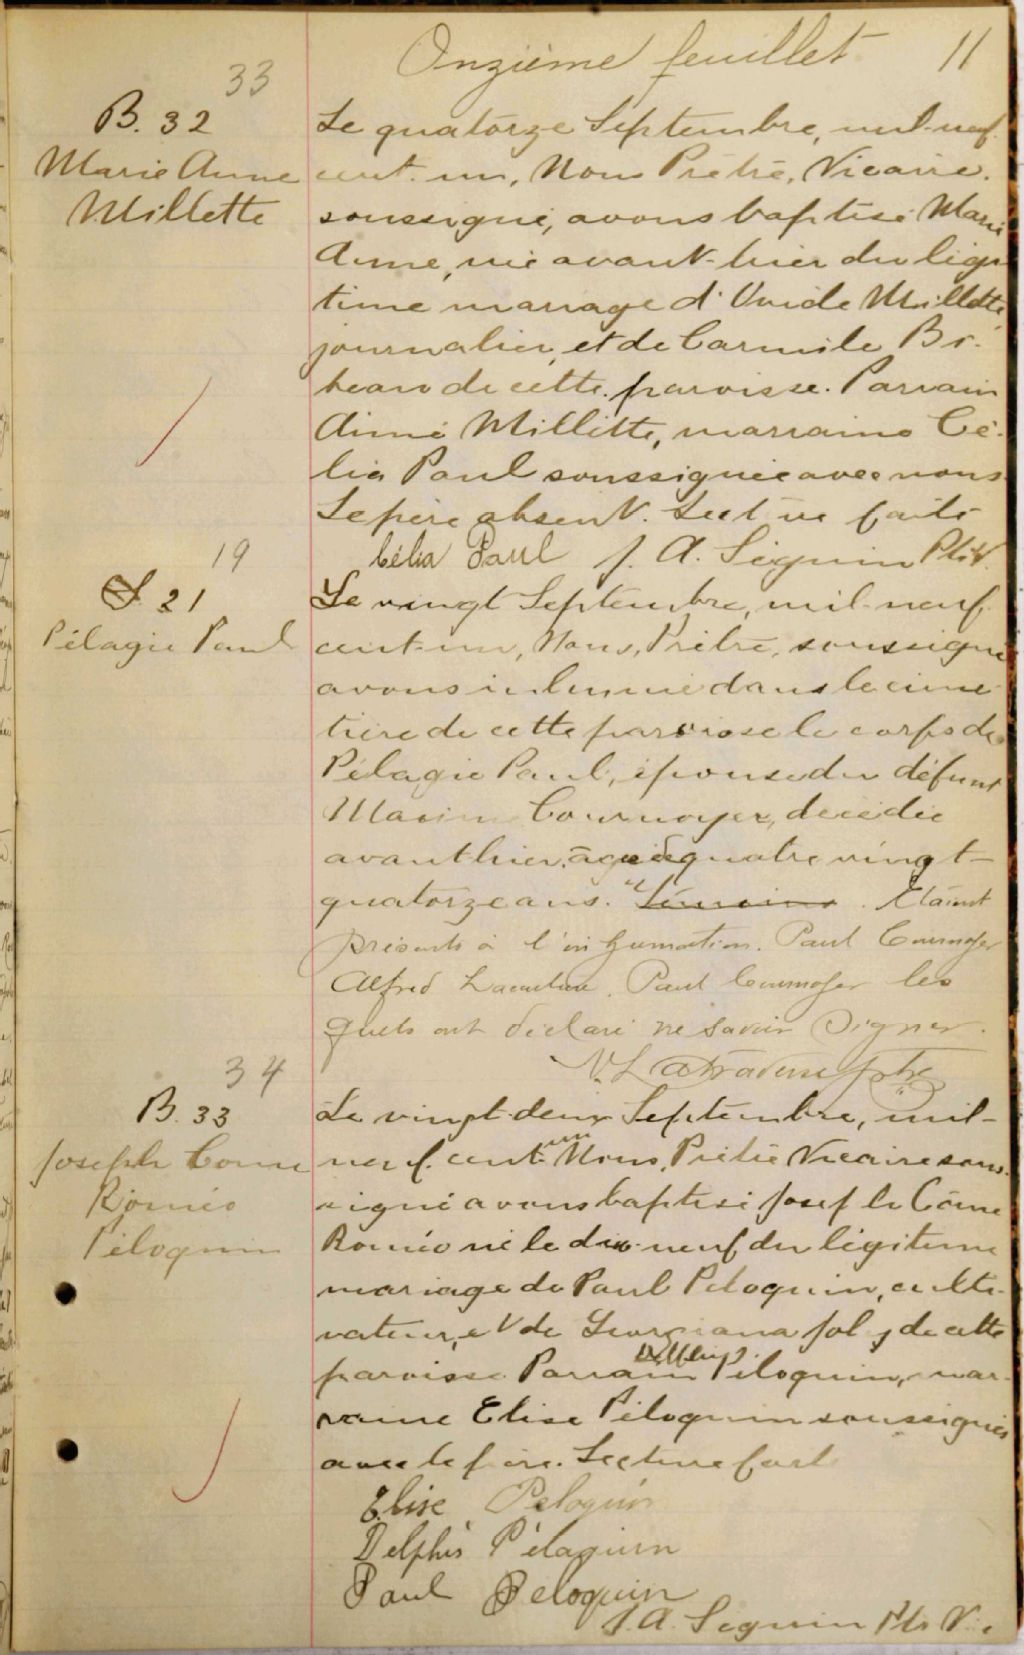 Onzième feuillet 11
33
B. 32
Marie Anne
Millette
Le quatorze Septembre, mil-neuf-
cent-un, Nous Prêtre, Vicaire.
soussigné, avons baptisé Marie
Anne, née avant-hier du légi-
time mariage d'Ovide Millette,
journalier, et de Carmile Bi-
beau de cette paroisse. Parrain
Aimé Millette, marraine Cé-
lia Paul soussignée avec nous
Le père absent. Lecture faite
Célia Paul J. A. Séguin Ptre V.
19
S. 21
Pélagie Paul
Le vingt Septembre, mil-neuf-
cent-un, Nous, Prêtre, soussigné
avons inhumé dans le cime-
tière de cette paroisse le corps de
Pélagie Paul, épouse du défunt
Maxime Cournoyer, décédée
avant hier, âgée de quatre vingt-
quatorze ans. Témoins. Etaient
présents à l'inhumation. Paul Cournoyer
Alfred Paul Cournoyer les
quels ont déclaré ne savoir signer.
V. Latraverse ptre
34
B. 33
Joseph Come
Roméo
Péloquin
Le vingt-deux Septembre, mil-
neuf-cent-un Nous, Prêtre Vicaire sous-
signé avons baptisé Joseph Côme
Roméo né le dix-neuf du légitime
mariage de Paul Péloquin, culti-
vateur, et de Georgiana Joly de cette
paroisse. Parrain Delphis Péloquin, mar-
raine Elise Péloquin soussignés
avec le père. Lecture faite
Elise Peloquin
Delphis Pélaquin
Paul Péloquin
J. A. Séguin Ptr V.